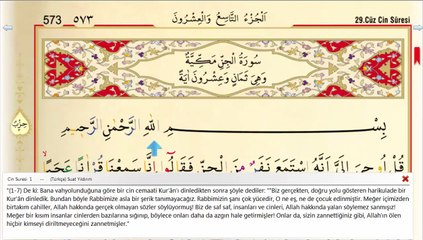 573 ٥٧٣ اَلْجُزْءُ التَّاسِعُ وَالْعِشْرُونَ 29.Cüz Cin Sûresi
سُورَةُ الْجِنِّ مَكِّيَّةٌ
وَهِيَ ثَمَانٍ وَعِشْرُونَ اٰيَةً
بِسْــــمِ اللّٰهِ الرَّحْمٰنِ الرَّحِيمِ
قُلْ اُو۫حِيَ اِلَيَّ اَنَّهُ اسْتَمَعَ نَفَرٌ مِنَ الْجِنِّ فَقَالُٓوا اِنَّا سَمِعْنَا قُرْاٰنًا عَجَبًا
Cin Suresi 1 (Türkçe) Suat Yıldırım
"(1-7) De ki: Bana vahyolunduğuna göre bir cin cemaati Kur'ân'ı dinledikten sonra şöyle dediler: ""Biz gerçekten, doğru yolu gösteren harikulade bir
Kur'ân dinledik. Bundan böyle Rabbimize asla bir şerik tanımayacağız. Rabbimizin şanı çok yücedir, O ne eş, ne de çocuk edinmiştir. Meğer içimizden
birtakım cahiller, Allah hakkında gerçek olmayan sözler söylüyormuş! Biz de saf saf, insanları ve cinleri, Allah hakkında yalan söylemez sanmışız!
Meğer bir kısım insanlar cinlerden bazılarına sığınıp, böylece onları daha da azgın hale getirmişler! Onlar da, sizin zannettiğiniz gibi, Allah'ın ölen
hiçbir kimseyi diriltmeyeceğini zannetmişler."